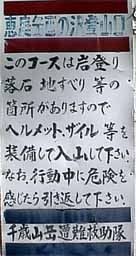 恵庭岳の沢登山口
このコースは岩登り
落石 地すべり 等の
箇所がありますので
ヘルメット、ザイル 等を
装備して入山して下さい。
なお、行動中に危険を
感じたら引き返して下さい。
千歳山岳遭難救助隊